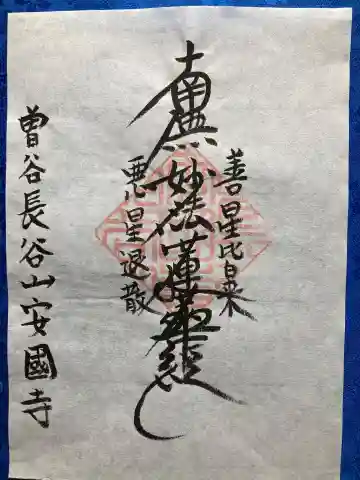 善星皆来
南無妙法蓮華経
悪星退散
曽谷長谷山安國寺